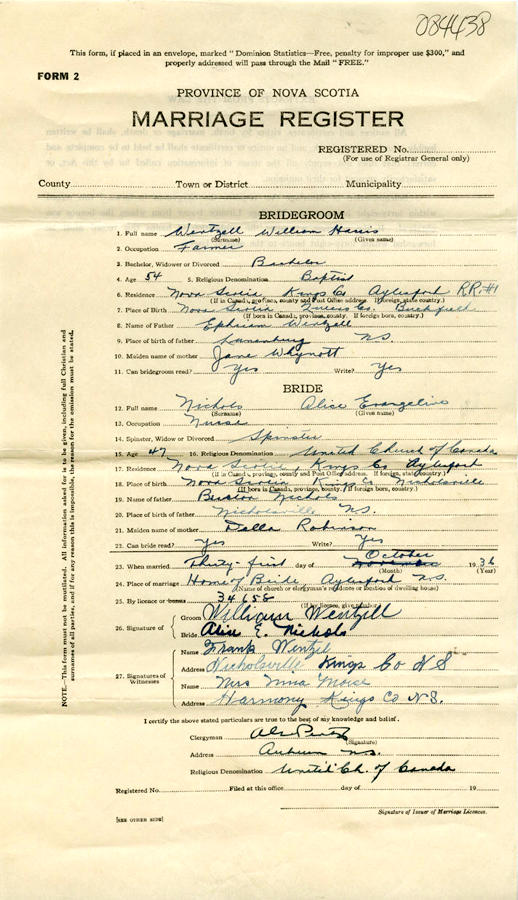 084438
This form, if placed in an envelope, marked "Dominion Statistics—Free, penalty for improper use $300," and
properly addressed will pass through the Mail "FREE."
FORM 2
PROVINCE OF NOVA SCOTIA
MARRIAGE REGISTER
REGISTERED No.
(For use of Registrar General only)
County Town or District Municipality
BRIDEGROOM
1. Full name Wentzell William Harris
(Surname) (Given name)
2. Occupation Farmer
3. Bachelor, Widower or Divorced Bachelor
4. Age 54 5. Religious Denomination Baptist
6. Residence Nova Scotia Kings Co Aylesford RR#1
(If in Canada, province, county and Post Office address. If foreign, state country.)
7. Place of Birth Nova Scotia Queens Co. Buckfield
(If born in Canada, province, county. If foreign born, country.)
8. Name of Father Ephriam Wentzell
9. Place of birth of father Lunenburg N.S.
10. Maiden name of mother Jane Whynott
11. Can bridegroom read? Yes Write? Yes
BRIDE
12. Full name Nichols Alice Evangeline
(Surname) (Given name)
13. Occupation Nurse
14. Spinster, Widow or Divorced Spinster
15. Age 47 16. Religious Denomination United Church of Canada
17. Residence Nova Scotia Kings Co Aylesford
(If in Canada, province, county and Post Office address. If foreign, state country.)
18. Place of birth Nova Scotia Kings Co. Nicholsville
(If born in Canada, province, country. If foreign born, country.)
19. Name of father Burton Nichols
20. Place of birth of father Nicholsville N.S.
21. Maiden name of mother Della Robinson
22. Can bride read? Yes Write? Yes
October
23. When married Thirty-first day of November 1936
(Month) (Year)
24. Place of marriage Home of Bride, Aylesford N.S.
(Name of church or clergyman's residence or location of dwelling house)
25. By licence or banns 34658
(If by license, give number)
26. Signature of Groom William Wentzell
Bride Alice E. Nichols
27. Signatures of Witnesses
Name Frank Wentzel
Address Nicholsville Kings Co N S
Name Mrs Nina
Address Harmony Kings Co N.S.
I certify the above stated particulars are true to the best of my knowledge and belief.
Clergyman
(Signature)
Address Auburn N.S.
Religious Denomination United Ch. of Canada
Registered No. Filed at this office day of 19
Signature of Issuer of Marriage Licences.
[SEE OTHER SIDE]
NOTE.—This form must not be mutilated. All information asked for is to be given, including full Christian and
surnames of all parties, and if for any reason this is impossible, the reason for the omission must be stated.